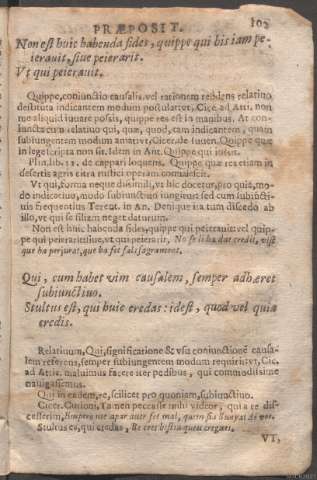 PRÆPOSIT. 103
Non est huic habenda fides, quippe qui bis iam pe-
ierauit, siue peierarit.
Vt qui peierauit.
Quippe, coniunctio causalis, vel rationem reddens relatiuo
destituta indicantem modum postulat: vt, Cice. ad Atti. non
me aliquid iuuare posis, quippe res est in manibus. At con-
iuncta cum relatiuo qui, quæ, quod, cam indicantem, quam
subiungentem modum amat: vt, Cicer. de Quippe quæ
in lege scripta non sit. Idem in Ant. Quippe qui
Plin. lib. de cappari loquens. Quippe quæ res etiam in
desertis agris citra rustici operam
Vt qui, forma neque dissimili, vt hic docetur, pro quia, mo-
do indicatiuo, modo subiunctiuo iungitur: sed cum subiuncti-
uo frequentius Terent. in An. Denique ita tum discedo ab
illo, vt qui se filiam neget daturum.
Non est huic habenda fides, quippe qui peierauit: vel quip-
pe qui peierarit: siue, vt qui peierarit, No se li ha dar credit, vist
que ha perjurat, que ha fet fals sagrament.
Qui, cum habet vim causalem, semper adhæret
subiunctiuo.
Stultus est, qui huic credas: idest, quod vel quia
credis.
Relatiuum, Qui, significatione & vsu coniunctionē causa-
lem referens, semper subiungentem modum requirit: vt, Cic.
ad Attic. maluimus facere iter pedibus, qui commodissime
nauigassemus.
Qui in eadem re, scilicet pro quoniam, subiunctiuo.
Cicer. Curioni, Tamen peccasse mihi videor, qui a te dis-
cesserim,
Stultus es, qui credas, Be eres bistia queu cregas.
VT,